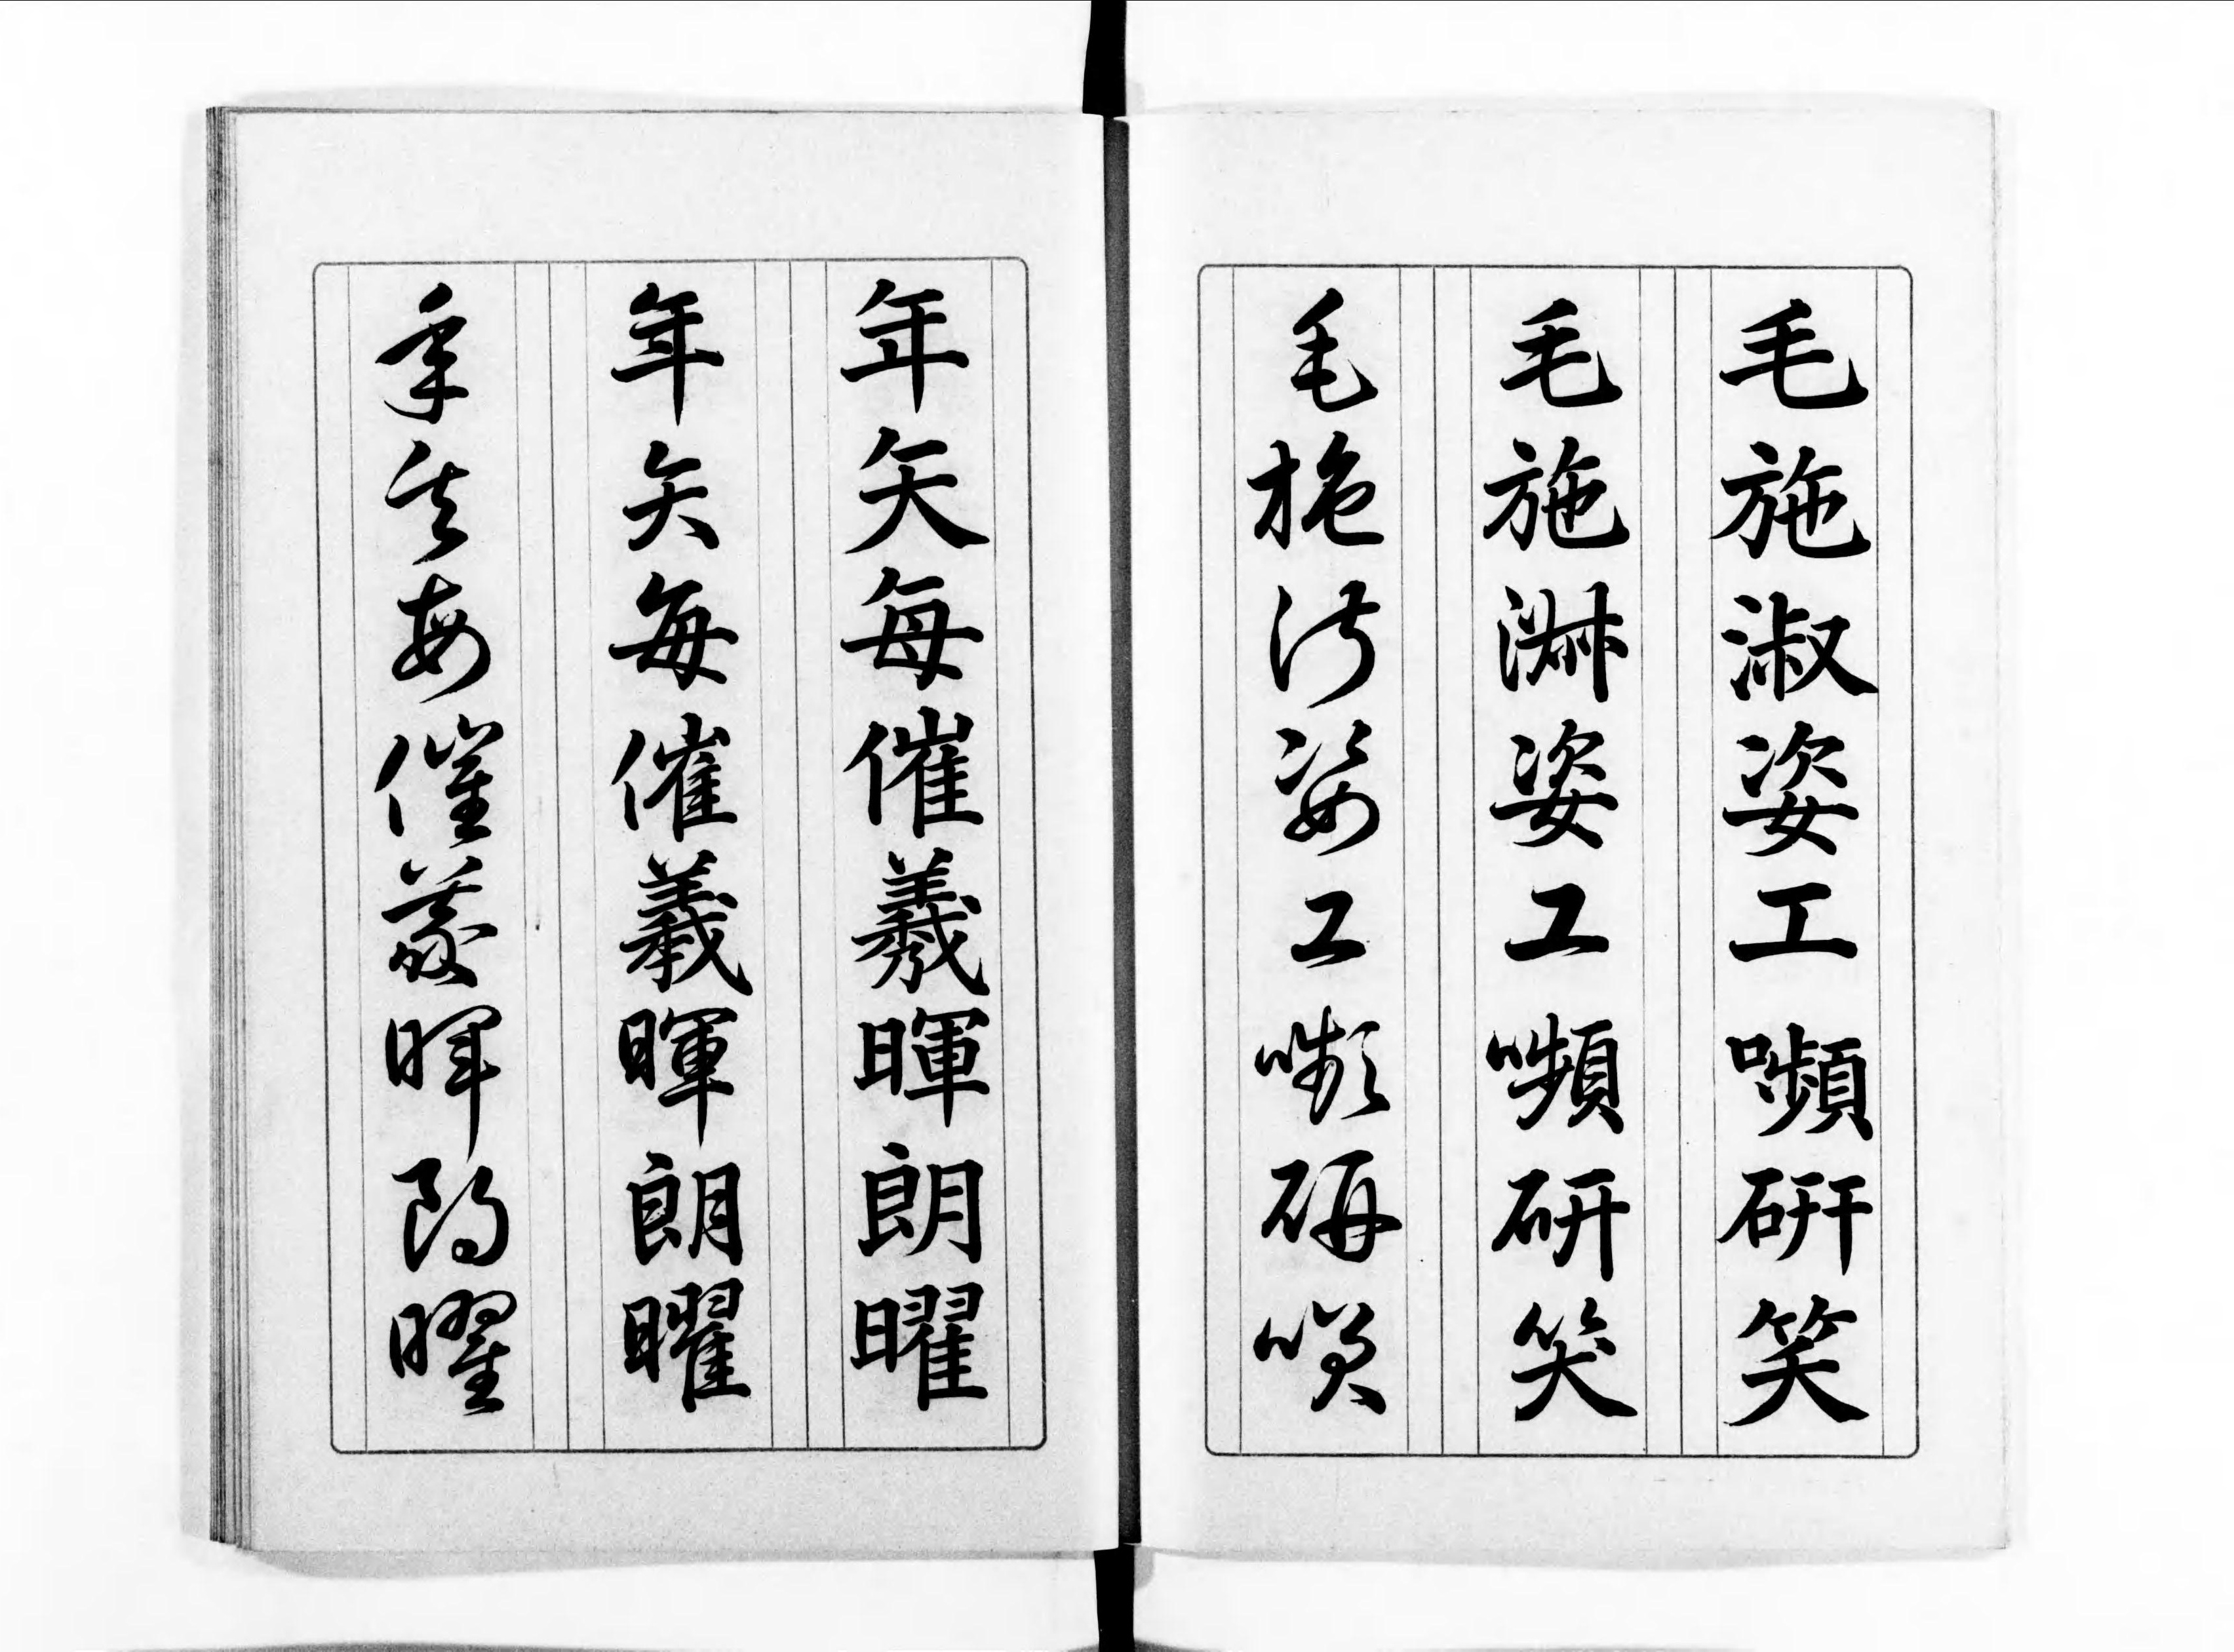 毛施淑姿工嚬研笑
毛施淋姿工嚬研笑
毛施淑姿工嚬研咲
年矢每催羲暉朗曜
年矢毎催羲暉朗曜
年矢每催羲暉朗曜